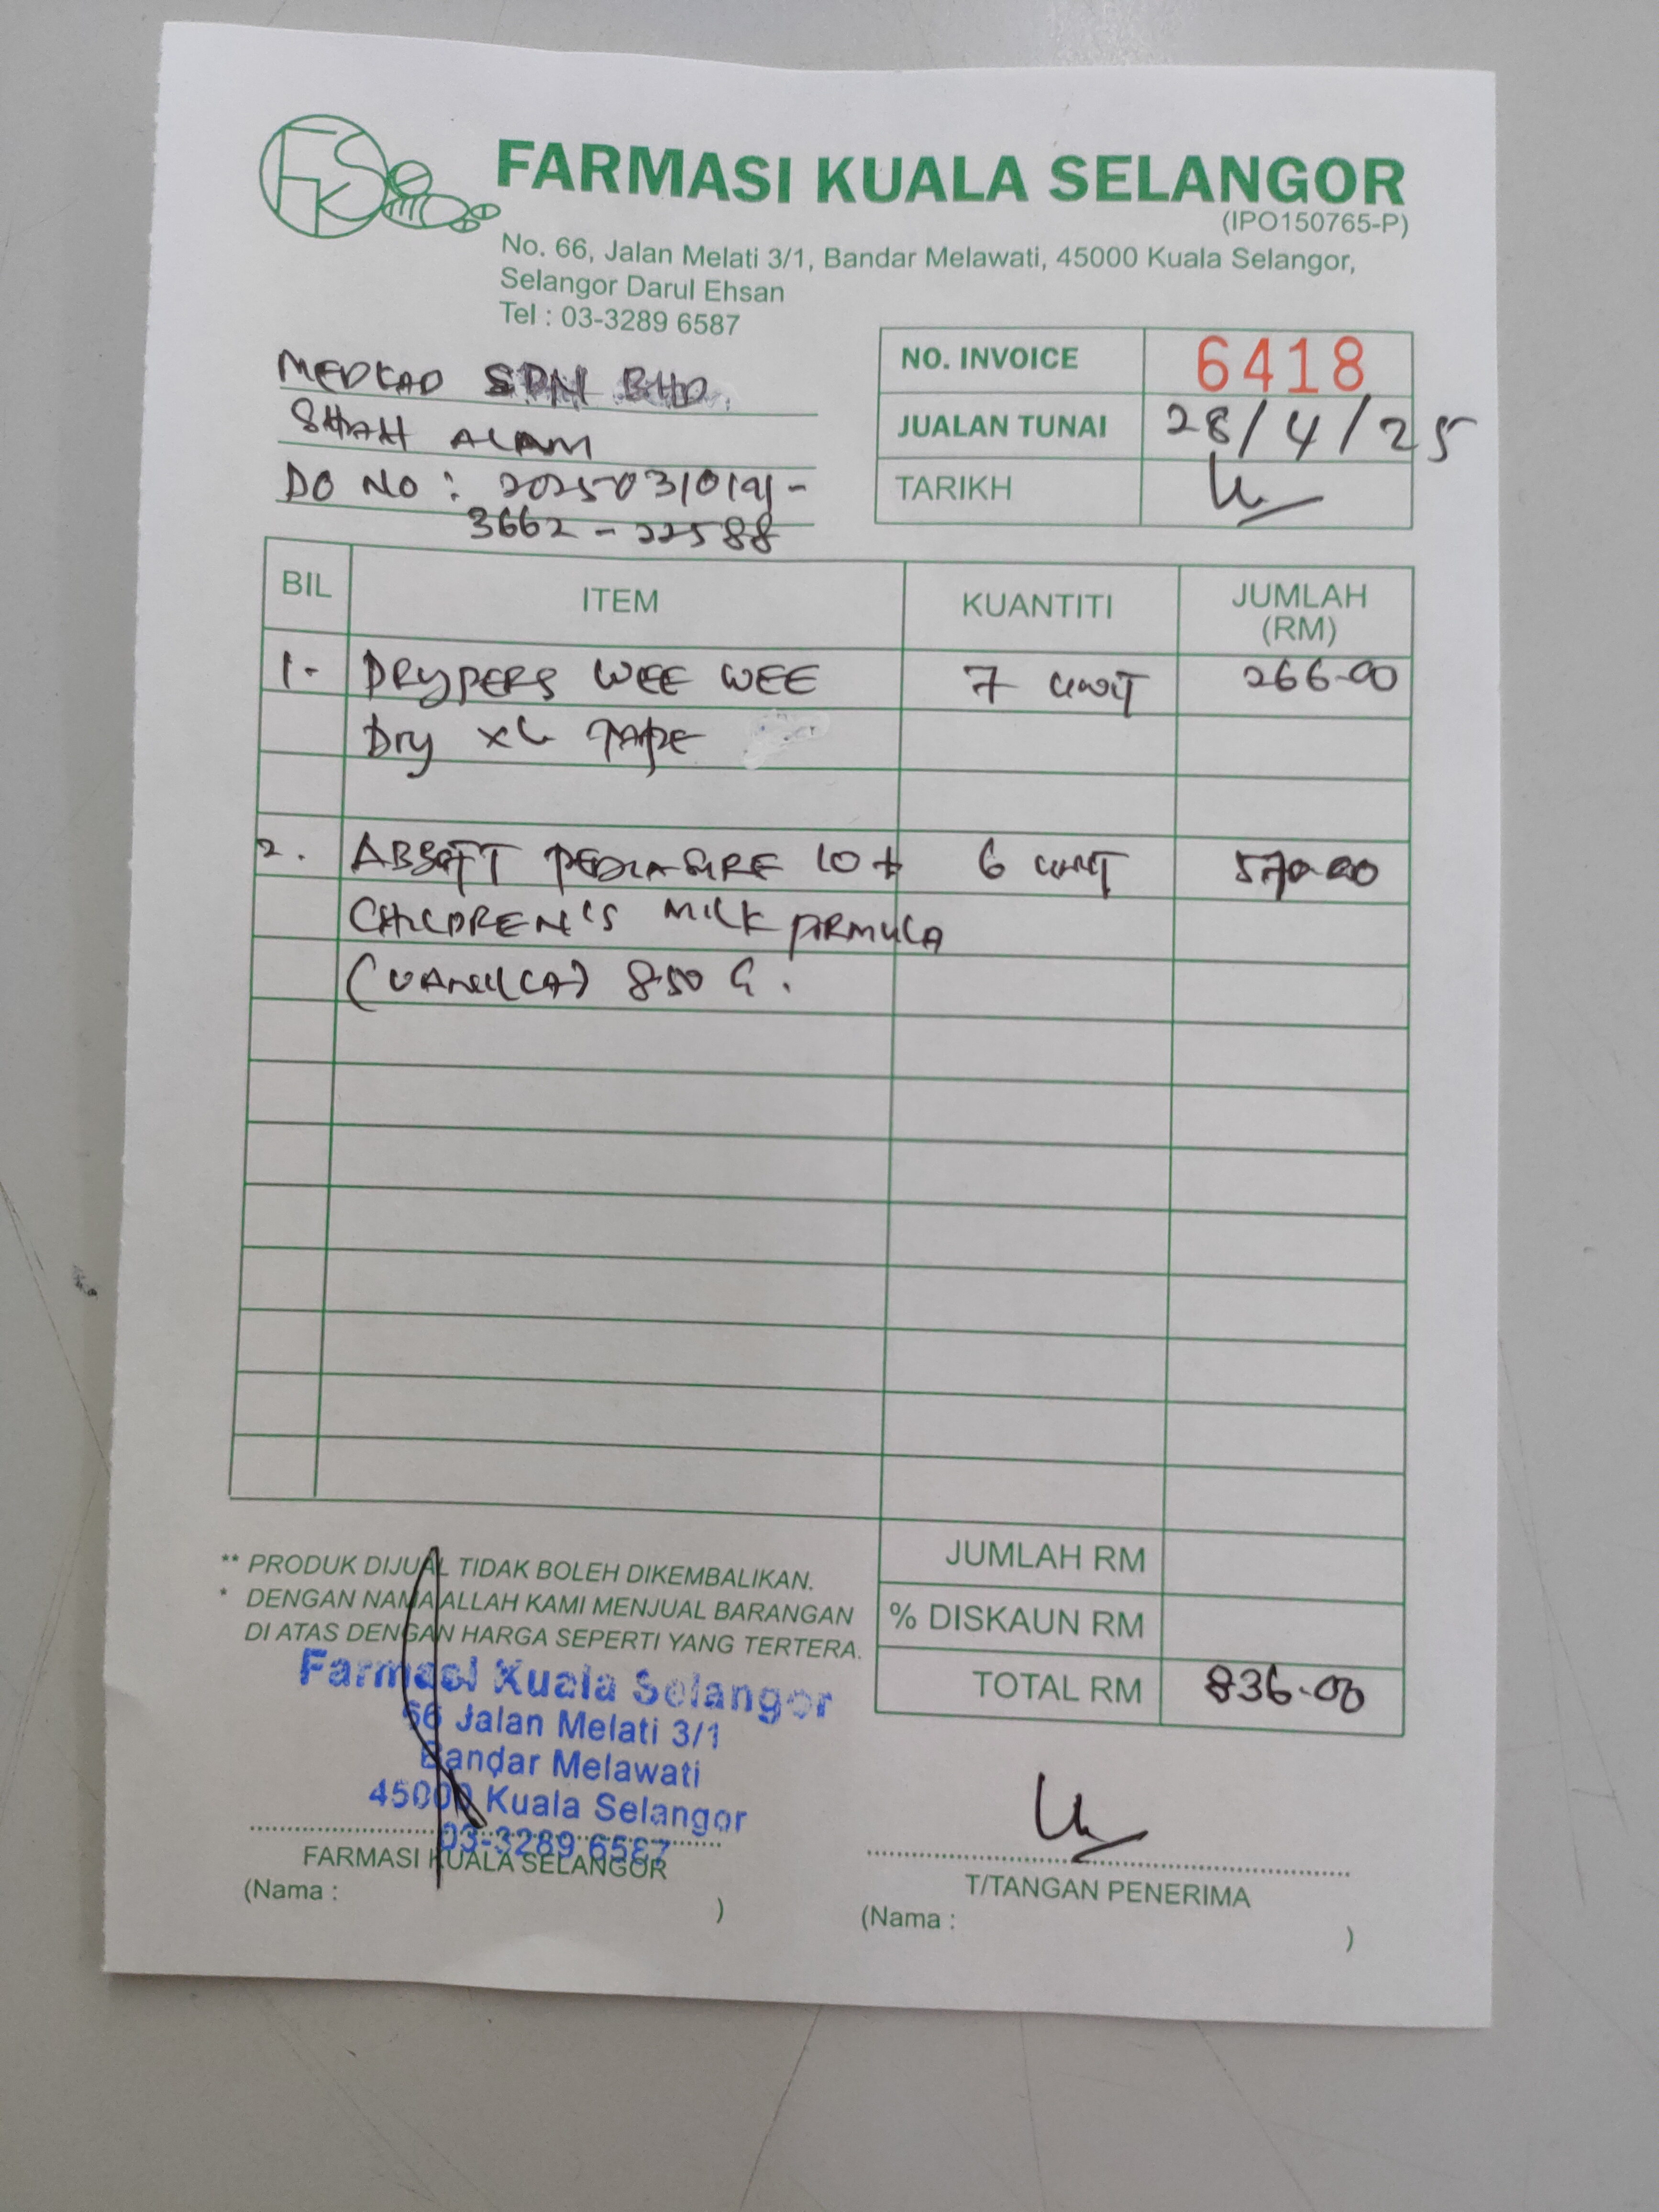 FKS
FARMASI KUALA SELANGOR
(IPO150765-P)
No. 66, Jalan Melati 3/1, Bandar Melawati, 45000 Kuala Selangor,
Selangor Darul Ehsan
Tel : 03-3289 6587
MEDKAD SDN BHD.
SHAH ALAM
DO NO :
3662 - 22588
NO. INVOICE 6418
JUALAN TUNAI 28/4/25
TARIKH
BIL ITEM KUANTITI JUMLAH (RM)
1- DRYPERS WEE WEE 7 UNIT 266-00
Dry XL TAPE
2. PEDIASURE 10+ 6 UNIT 570-00
CHILDREN'S MILK FORMULA
850 G.
JUMLAH RM
% DISKAUN RM
TOTAL RM 836-00
** PRODUK DIJUAL TIDAK BOLEH DIKEMBALIKAN.
* DENGAN NAMA ALLAH KAMI MENJUAL BARANGAN
DI ATAS DENGAN HARGA SEPERTI YANG TERTERA.
Farmasi Kuala Selangor
66 Jalan Melati 3/1
Bandar Melawati
45000 Kuala Selangor
03-3289 6587
FARMASI KUALA SELANGOR
(Nama : )
T/TANGAN PENERIMA
(Nama : )